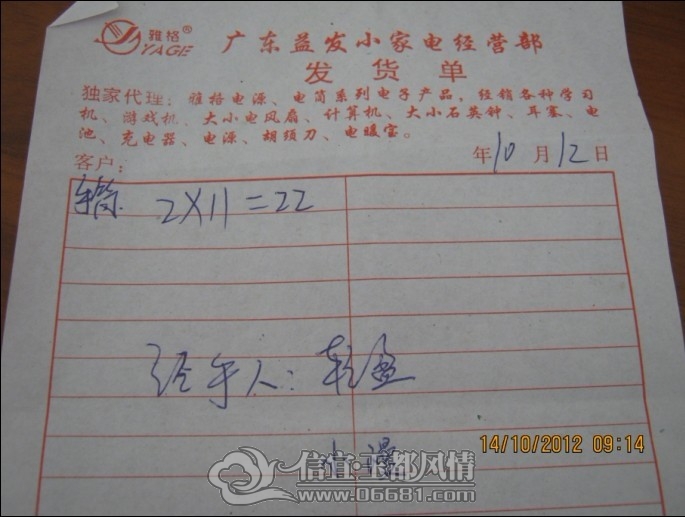 雅格®
YAGE
广东益发小家电经营部
发货单
独家代理：雅格电源、电筒系列电子产品，经销各种学习
机、游戏机、大小电风扇、计算机、大小石英钟、耳塞、电
池、充电器、电源、胡须刀、电暖宝。
客户：
年10月12日
2X11=22
经手人：轻盈
14/10/2012 09:14
信宜·玉都风情
www.06681.com